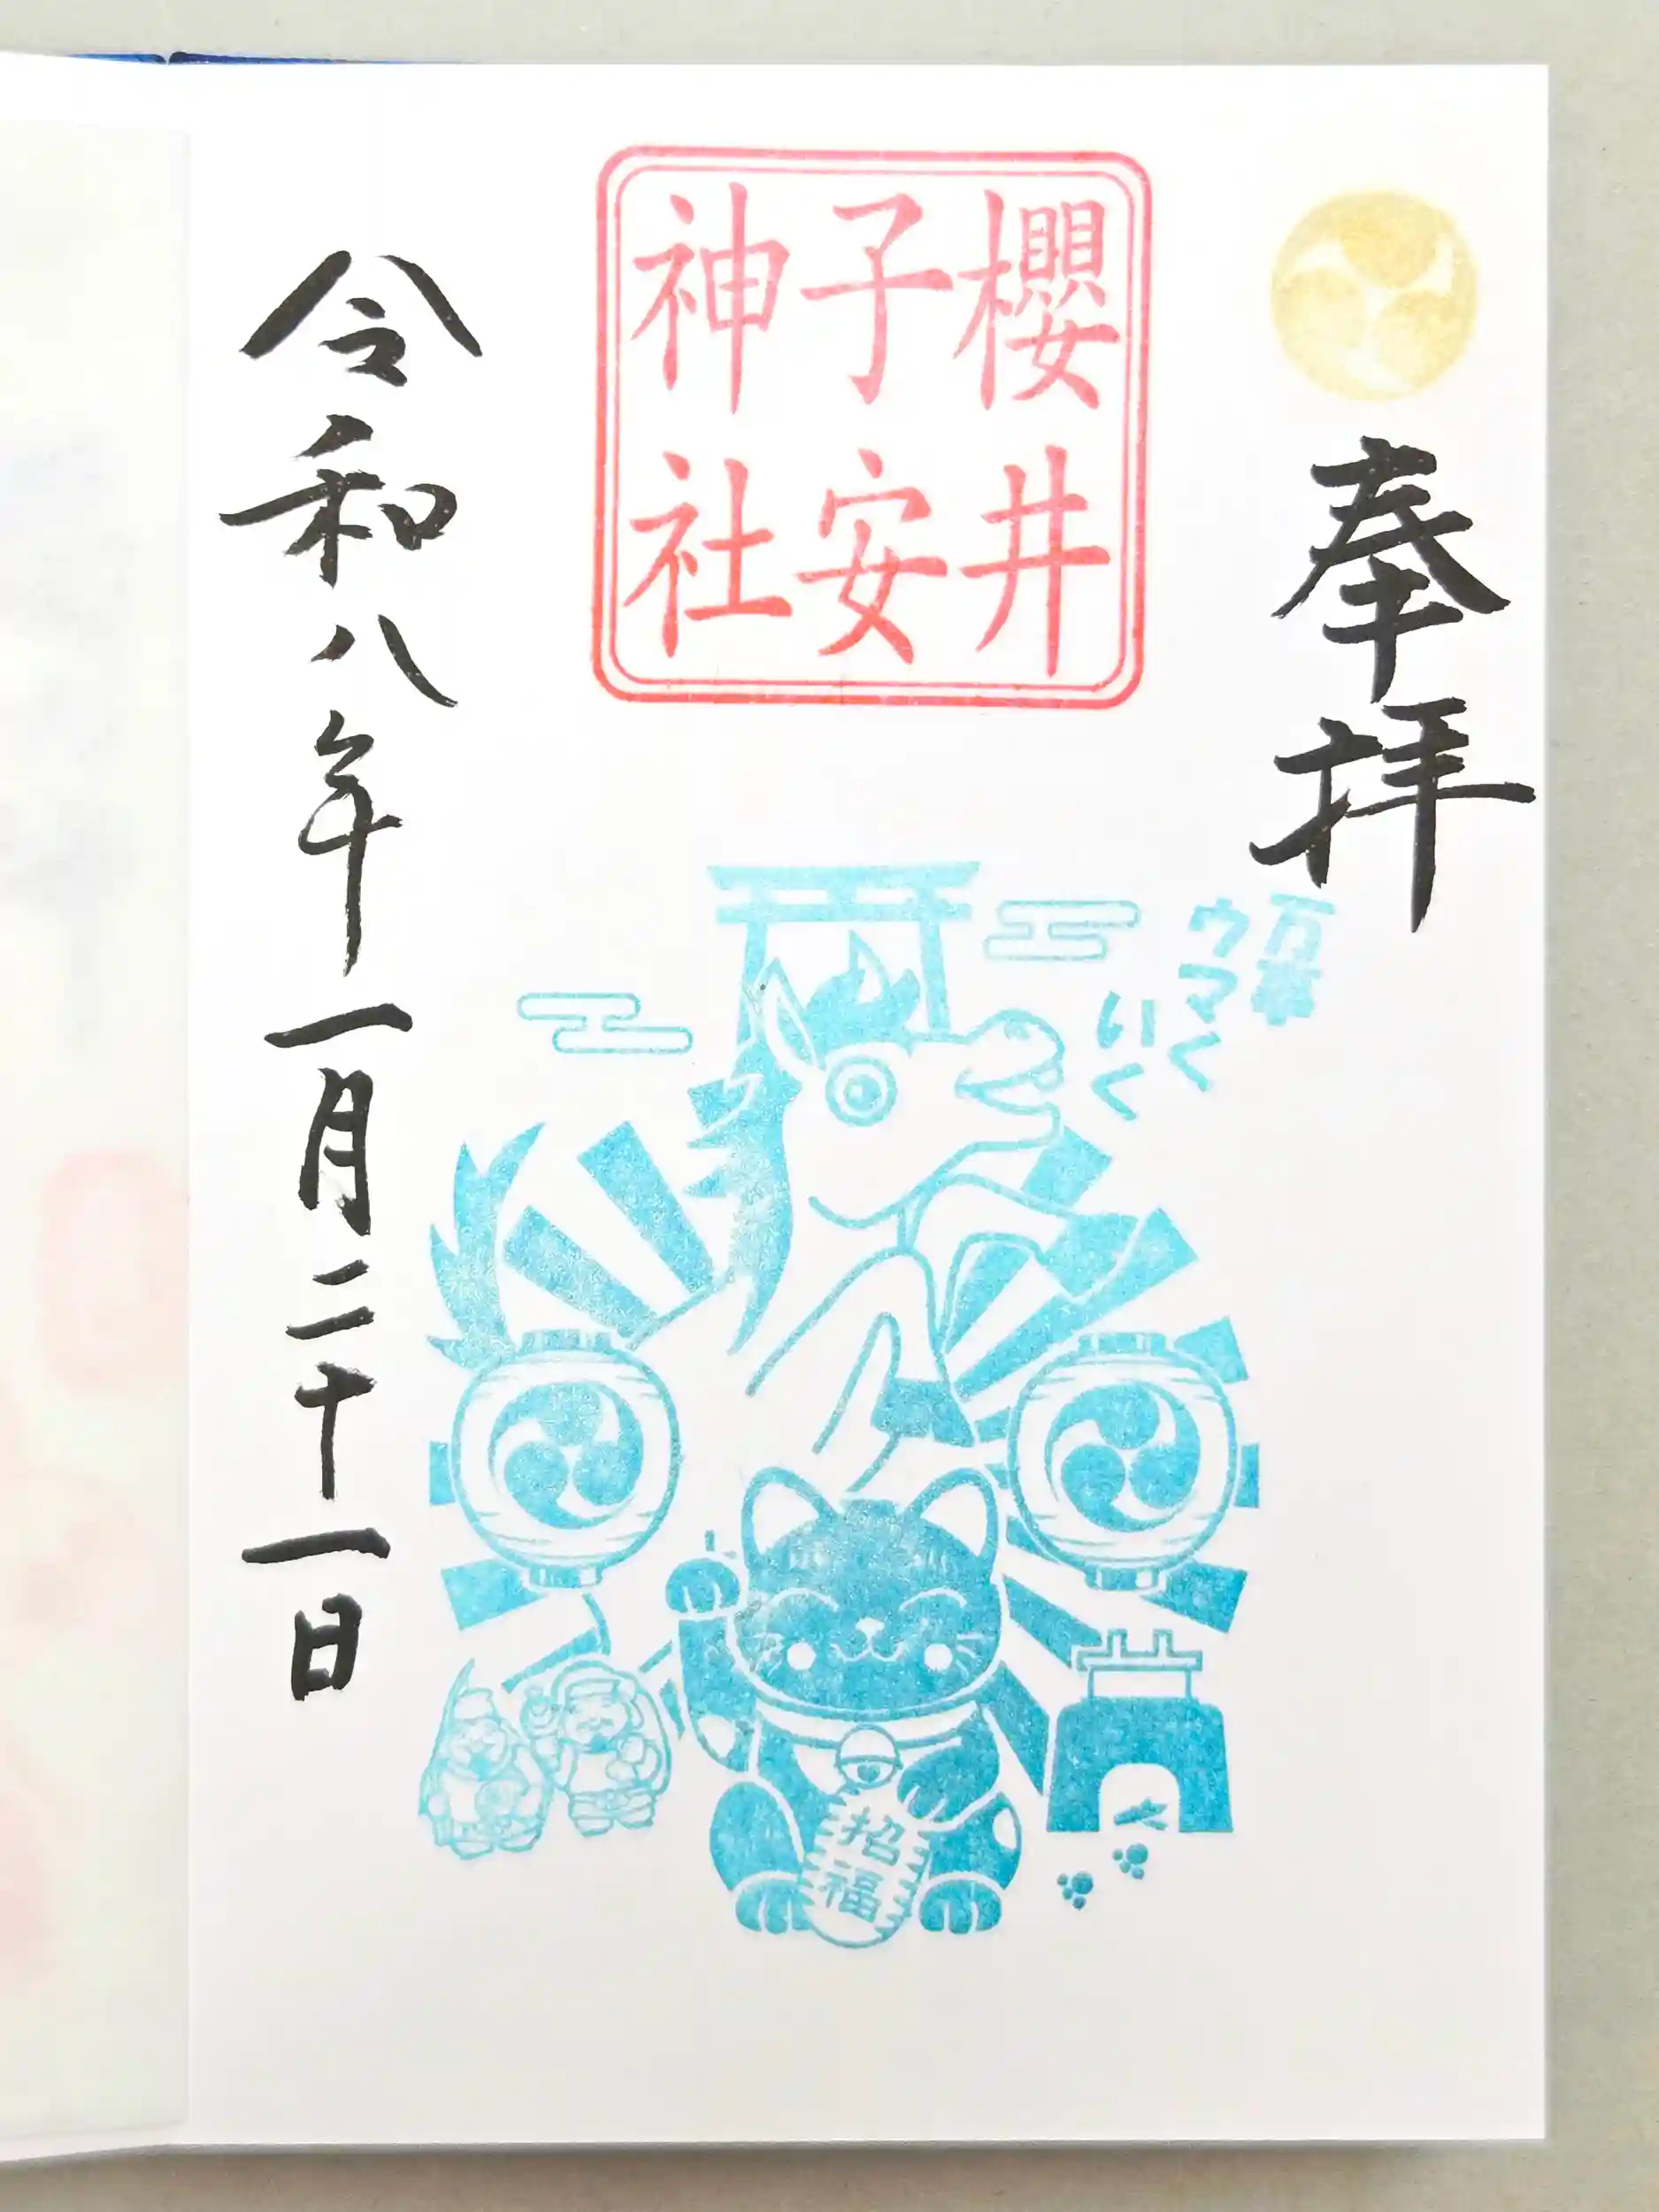 奉拝
櫻井
子安
神社
万事
ウマく
いく
招福
令和八年一月二十一日